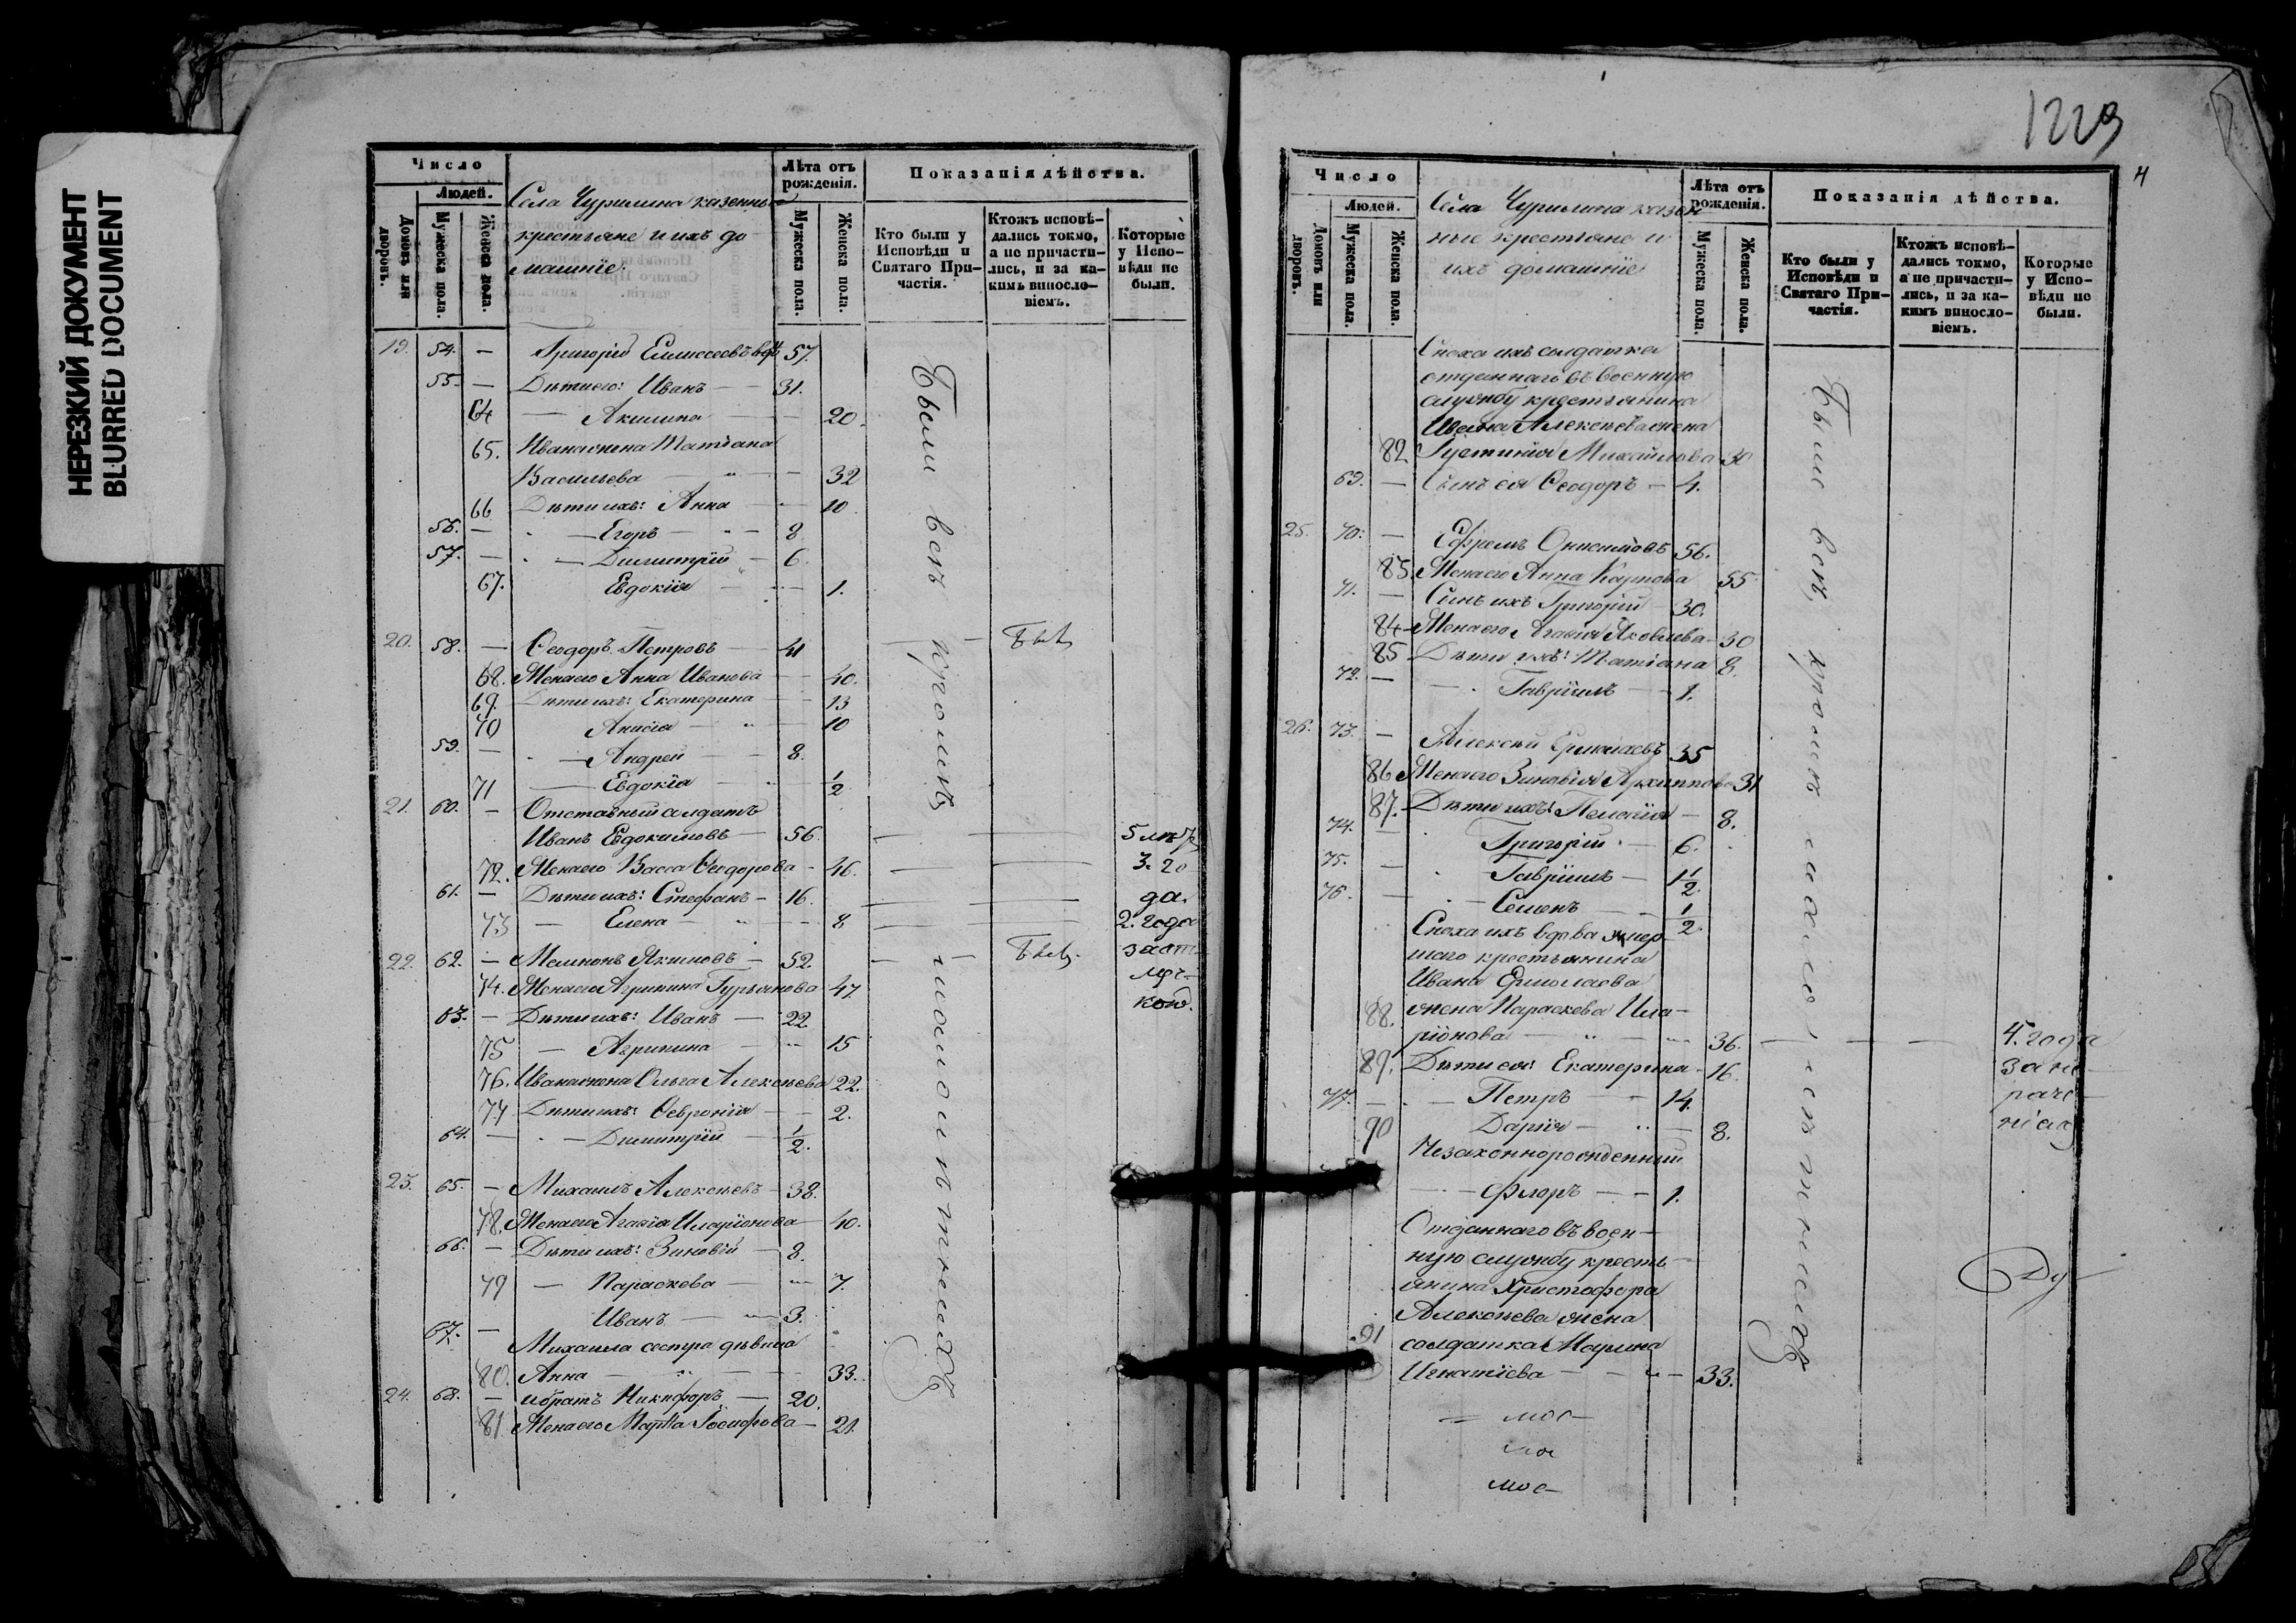 НЕРЕЗКИЙ ДОКУМЕНТ
BLURRED DOCUMENT
Число
Людей.
Домовъ или дворовъ.
Мужеска пола.
Женска пола.
Села Чурилина казенные
крестьяне и ихъ до
машнїе.
Лѣта отъ рожденія.
Мужеска пола.
Женска пола.
Показанія дѣйства.
Кто были у Исповѣди и Святаго При-частія.
Ктожъ исповѣ-дались токмо, а не причасти-лись, и за ка-кимъ виносло-віемъ.
Которые у Испо-вѣди не были.
19. 54. — Григорїй Елисеевъ вдв 57.
55. — Дѣти его: Иванъ — 31.
64 — Акилина — 20.
65. Ивана жена Татїана
Васильева — 32
66 Дѣти ихъ: Анна — 10
56. — Егоръ — 8
57. — Димитрїй — 6.
67. Евдокїя — 1.
20. 58. — Ѳеодоръ Петровъ — 41
68. Жена его Анна Иванова — 40.
69. Дѣти ихъ: Екатерина — 13
70 Анисїя — 10
59. — Андрей — 8.
71 — Евдокїа — 1/2
21. 60. — Отставный солдатъ
Иванъ Евдокимовъ — 56. — —
72. Жена его Васса Ѳеодорова — 46. — —
61. — Дѣти ихъ: Стефанъ — 16. — —
73 — Елена — 8 — —
22. 62. — Мемнонъ Якимовъ — 52 —
74. Жена его Агрипина Гурьянова 47.
63. — Дѣти ихъ: Иванъ — 22
75 — Агрипина — 15
76. Ивана жена Ольга Алексѣева 22.
77 Дѣти ихъ: Ѳеврониїя — 2.
64. — Димитрїй — 1/2.
23. 65. — Михаилъ Алексѣевъ — 38.
78. Жена его Агаѳїа Иларїонова — 40.
66. — Дѣти ихъ: Зиновїй — 8.
79 — Параскева — 7.
67. — Иванъ — 3.
Михаила сестра дѣвица
80. Анна — 33.
24. 68. — и братъ Никифоръ — 20.
81 Жена его Марѳа Іосифова — 21.
Были всѣ кромѣ
2. года
1229
4
Число
Людей.
Домовъ или дворовъ.
Мужеска пола.
Женска пола.
Села Чурилина казен
ные крестьяне и
ихъ домашнїе
Лѣта отъ рожденія.
Мужеска пола.
Женска пола.
Показанія дѣйства.
Кто были у Исповѣди и Святаго При-частія.
Ктожъ исповѣ-дались токмо, а не причасти-лись, и за ка-кимъ виносло-віемъ.
Которые у Испо-вѣди не были.
Сноха ихъ солдатка
отданнаго въ военную
службу крестьянина
Ивана Алексѣева жена
82. Іустинїя Михайлова 30
69. — Сынъ ея Ѳеодоръ — 4.
25. 70. — Ефремъ Онисимовъ 56.
83. Жена его Анна Карпова 55
71. — Сынъ ихъ Григорїй — 30.
84 Жена его Агаѳїя Яковлева — 30
85 Дѣти ихъ: Татїана 8.
72. — Гаврїилъ — 1.
26. 73. — Алексѣй Ермолаевъ 35
86 Жена его Зиновїя Архиппова 31
87. Дѣти ихъ: Пелагїя — 8.
74. — Григорїй — 6.
75. — Гаврїилъ — 1 1/2
76. — Семенъ — 1/2.
Сноха ихъ вдова умер
шаго крестьянина
Ивана Ермолаева
88. жена Параскева Ила-
рїонова — 36. — —
89. Дѣти ея: Екатерина — 16
77. — Петръ — 14.
90 Дарїя — 8.
Незаконнорожденный
— Флоръ — 1.
Отданнаго въ воен-
ную службу кресть-
янина Христофора
Алексѣева жена
91 солдатка Марина
Игнатїева — 33.
Были всѣ, кромѣ
4. года
за не